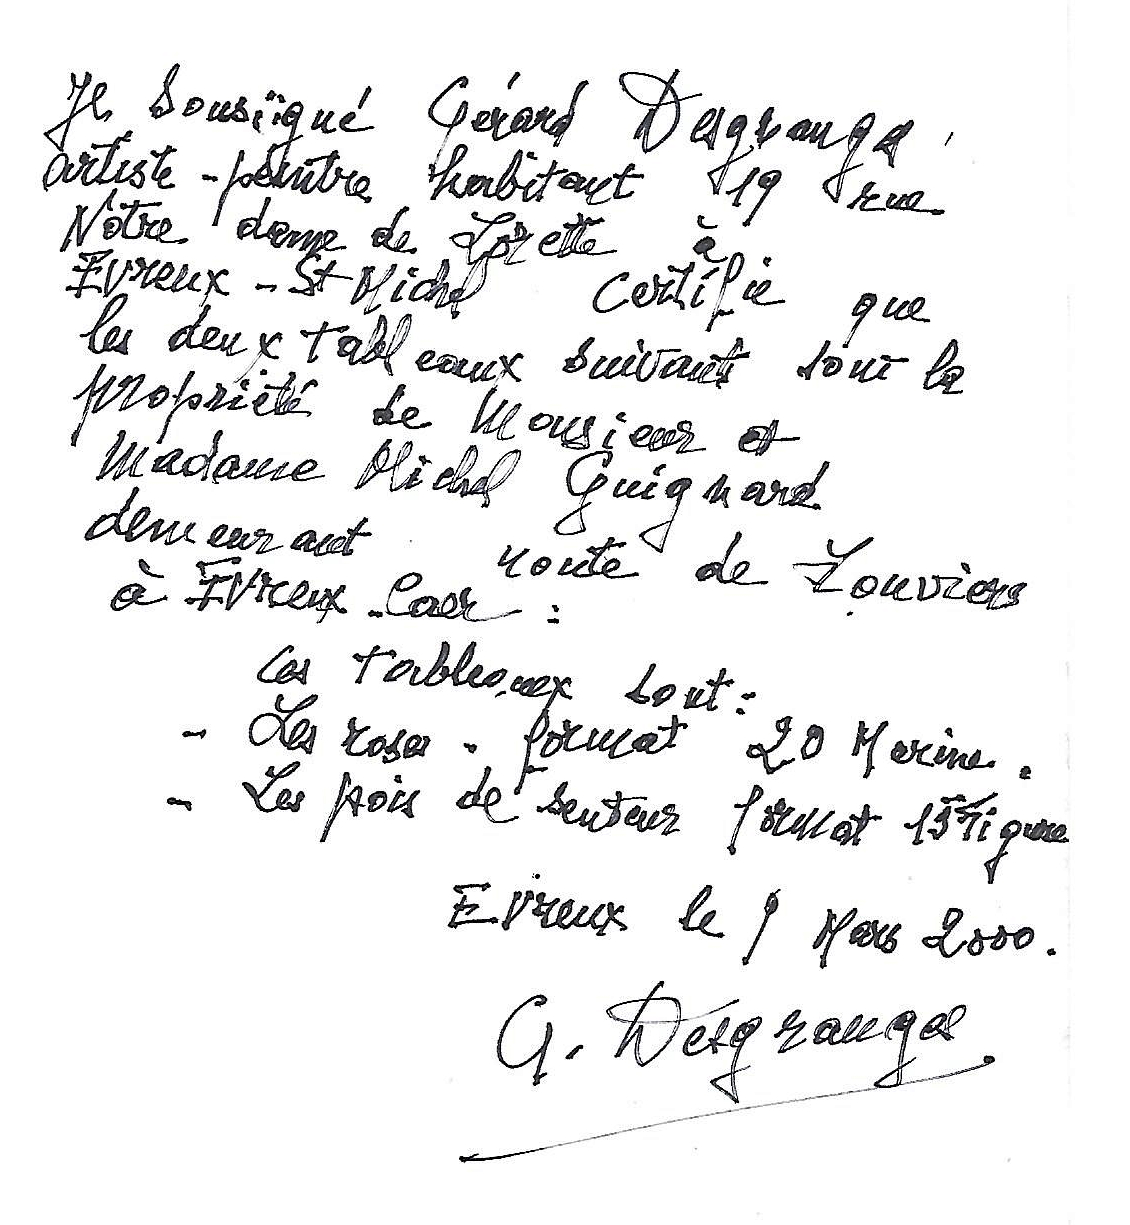 Je Sousigué Gérard Desgranges
artiste-peintre habitant 19 rue
Notre dame de Lorette à
Evreux - St Michel certifie que
les deux tableaux suivants sont la
propriété de Monsieur et
Madame Michel Guignard
demeurant route de Louviers
à Evreux Caer :
Ces tableaux sont :
- Les roses - format 20 Marine.
- Les pois de senteur format 15 Figure
Evreux le 9 Mars 2000.
G. Desgranges